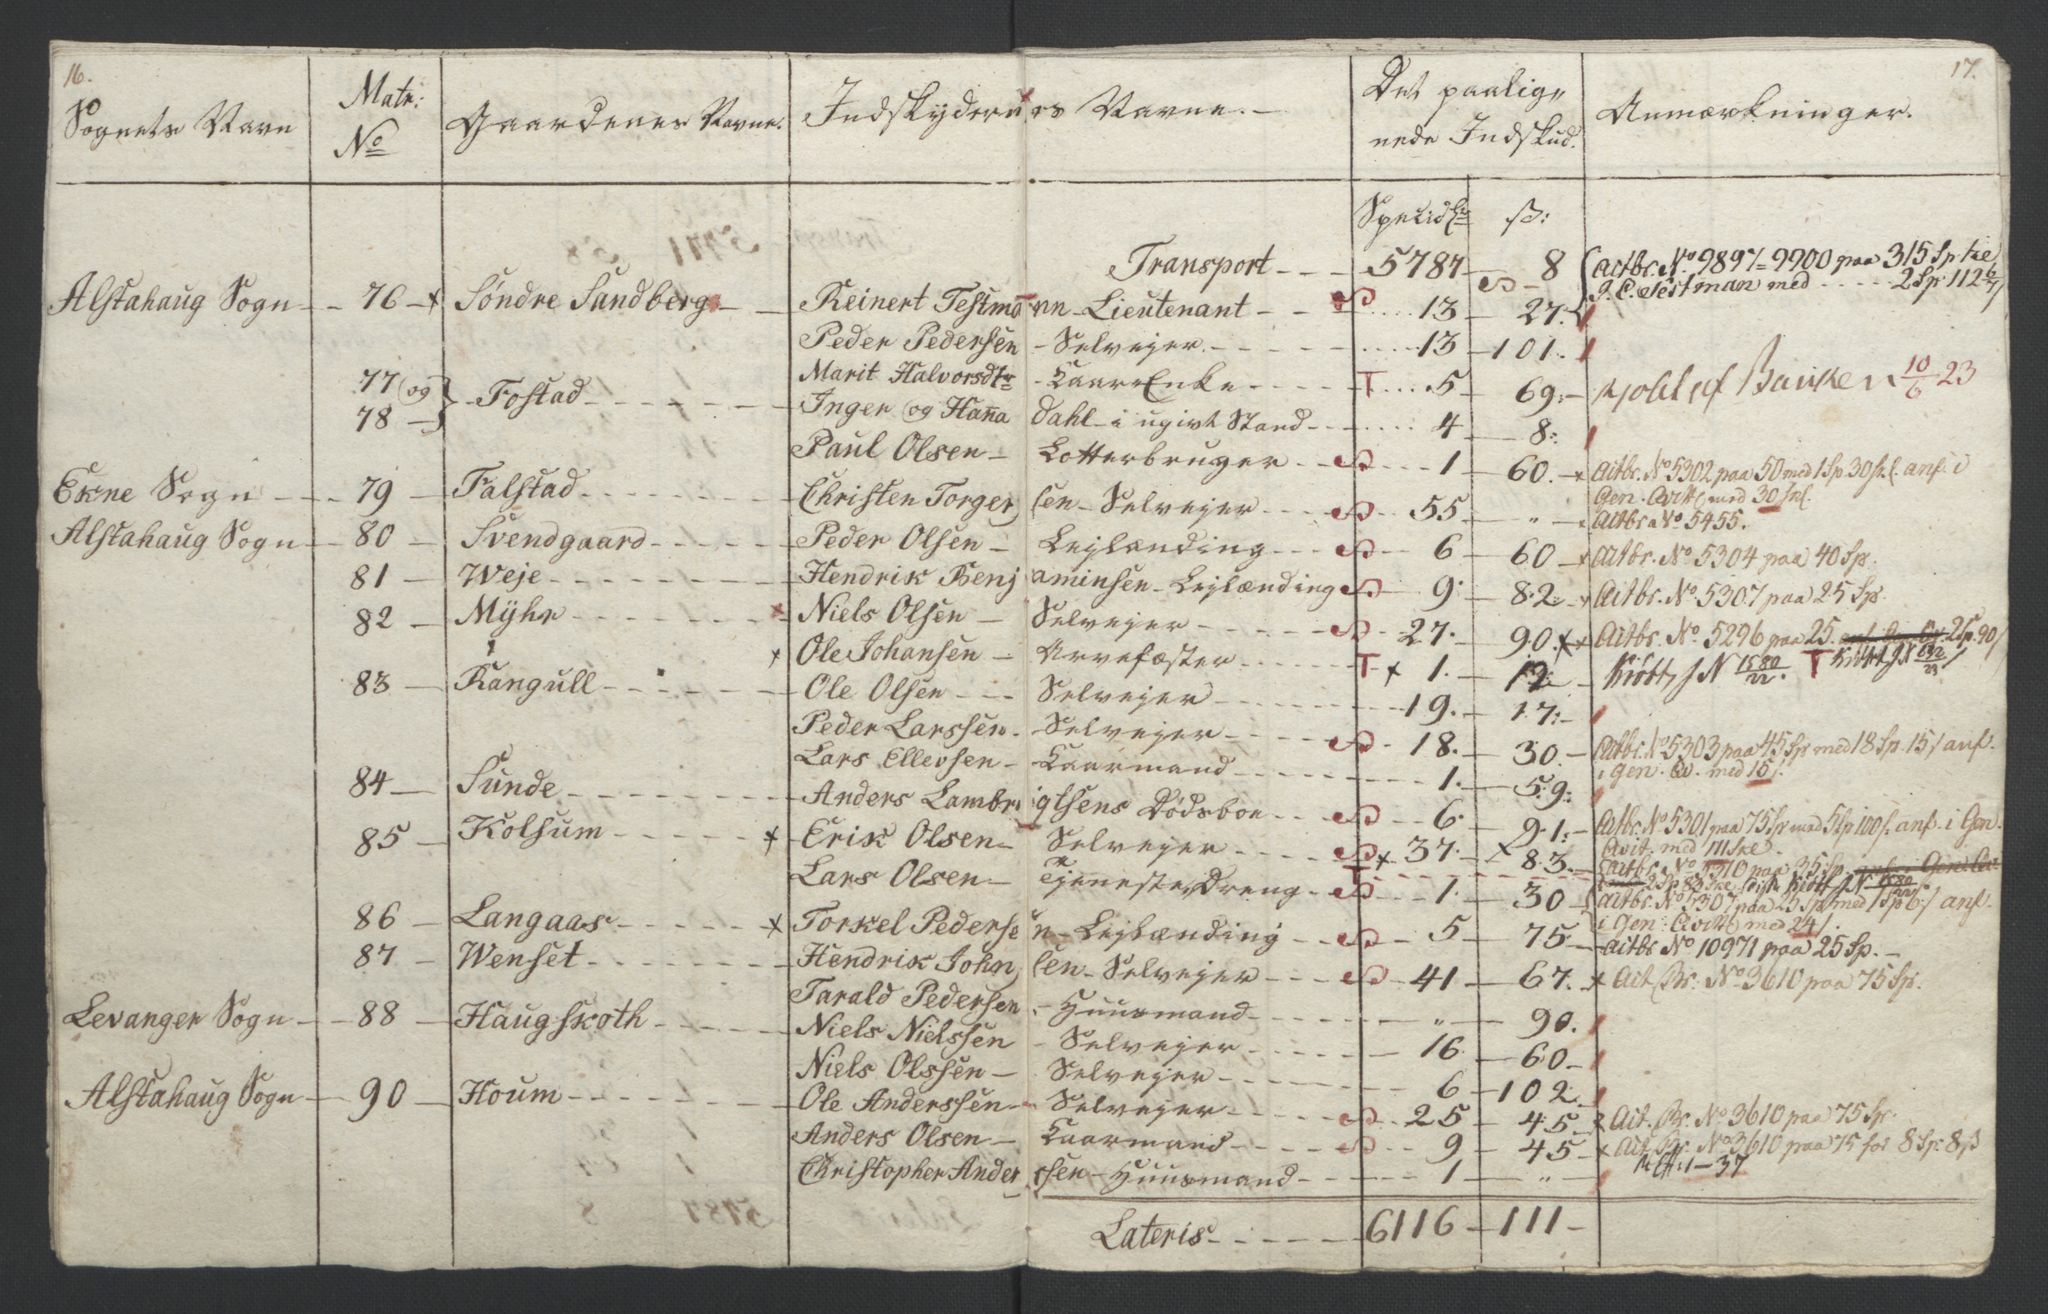 16.
17.
Sognets Navn Matr: No Gaardenes Navne. Indskydernes Navne. Det paalig„ nede Indskud. Anmærkninger.
Specid ß:
Transport 5787 8 Actbr. No 9897-9900 paa 315 Sp
J. C. Testman med 2 Sp 112 6/7
Alstahaug Sogn 76 Söndre Sundberg Reinert Testmann Lieutenant S 13 27
Peder Pedersen Selvejer 13 101
77 og 78 Fostad Marit Halvorsdtr KaarEnke T 5 69 Banken 10/6 23
Inger og Hanna Dahl i ugivt Stand 4 8
Paul Olsen S 1 60 Actbr. No 5302 paa 50 med 1 Sp 30 sk. anf. i
Gen. med 30 sk.
Ekne Sogn 79 Falstad Christen Torgersen Selvejer S 55 " Actbr No 5455.
Alstahaug Sogn 80 Svendgaard Peder Olsen Lejlænding S 6 60 Actbr. No 5304 paa 40 Sp.
81 Weje Hendrik Benjaminsen Lejlænding S 9 82 Actbr. No 5307 paa 25 Sp.
82 Myhr Niels Olsen Selvejer S 27 90 Actbr. No 5296 paa 25. 2 Sp. 90
Ole Johansen Arvefæster T 1 12 J N 1580/22. T J N 632/23
83 Rangull Ole Olsen Selvejer 19 17
Peder Larssen Selvejer S 18 30 Actbr. No 5303 paa 45 Sp med 18 Sp. 15 anf.
i Gen. med 15
Lars Ellevsen Kaarmand 1 59
84 Sunde Anders Lambrigtsens Dödsboe S 6 91 Actbr. No 5301 paa 75 Sp med 5 Sp 100 anf. i Gen.
med 111 ske.
85 Kolsum Erik Olsen Selvejer S 37 83 Actbr. No 1310 paa 35 Sp
Lars Olsen Tjeneste Dreng S 1 30 Actbr. No 5307 paa 25 Sp med 1 Sp 6 anf.
i Gen: med 24
86 Langaas Torkel Pedersen Lejlænding S 5 75 Actbr No 10971 paa 25 Sp.
87 Wenset Hendrik Johnsen Selvejer S 41 67 Act. Br. No 3610 paa 75 Sp.
Tarald Pedersen Huusmand " 90
Levanger Sogn 88 Haugskoth Niels Nielssen Selvejer 16 60
Niels Olssen Selvejer 6 102
Alstahaug Sogn 90 Houm Ole Anderssen Selvejer S 25 45 Act. Br. No 3610 paa 75 Sp.
Anders Olsen Kaarmand S 9 45 Act. Br. No 3610 paa 75 for 8 Sp. 8 ß
1-37
Christopher Anderssen Huusmand 1 "
Lateris 6116 111